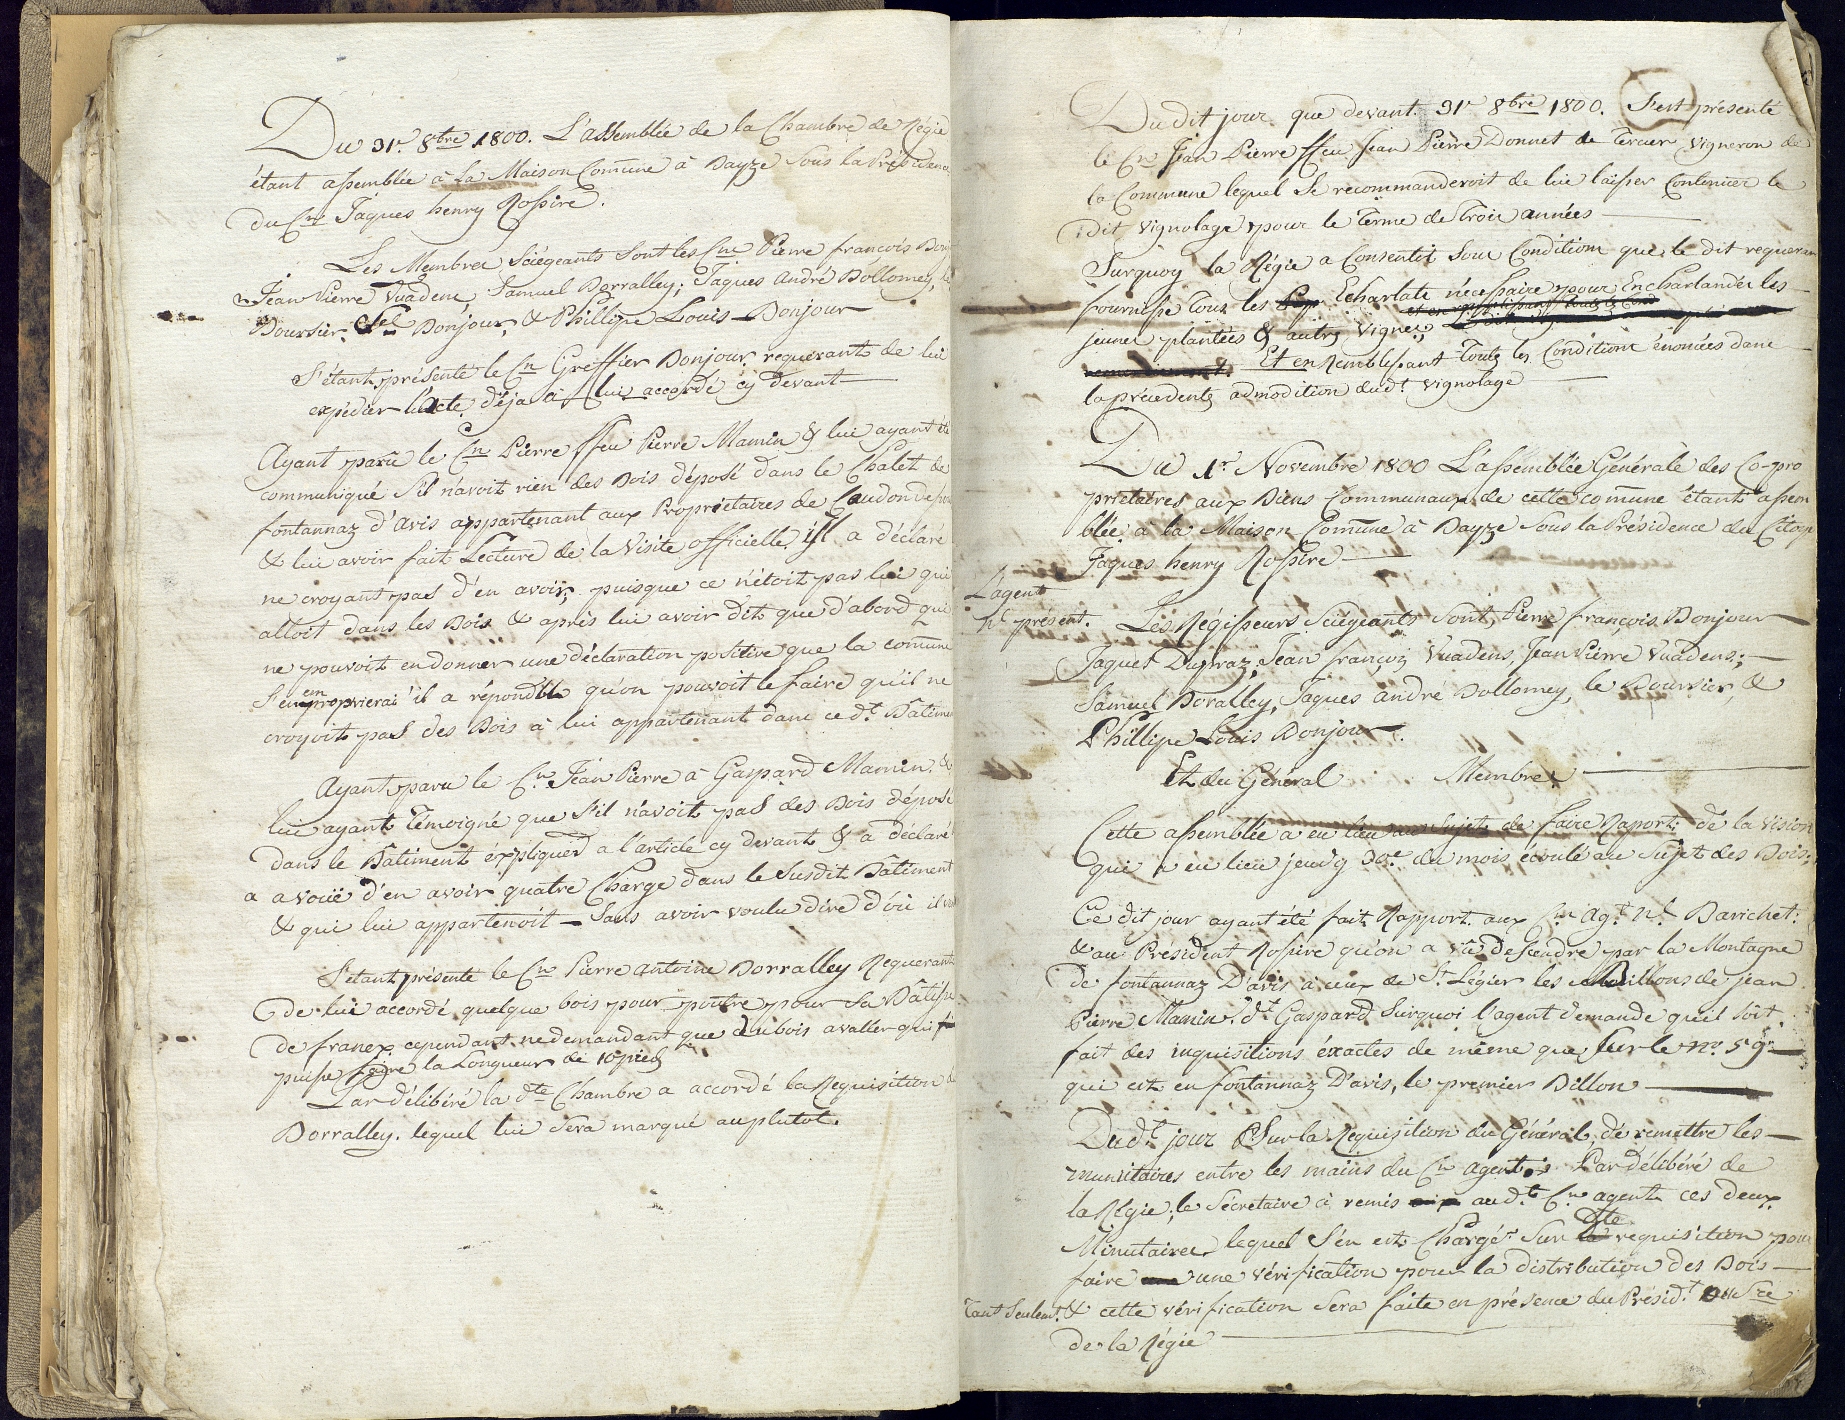 Du 31.e 8bre 1800. L'assemblée de la Chambre de Régie
étant assemblée à la Maison Comune à Dayze Sous la Présidence
du Cne Jaques henry Rossire.
Les Membres Sciégeants Sont les Cne Pierre françois Bon
Jean Pierre Vuadens, Samuel Dorralley; Jaques André Dollomey, le
Boursier, Sel Bonjour, & Phillipe Louis Bonjour
S'étant présenté le Cn Greffier Bonjour requerant de lui
expédier l'acte déja à lui accordé cy devant
Ayant paru le Cn Pierre ffeu Pierre Mamin & lui ayant été
communiqué S'il n'avoit rien des Bois déposé dans le Chalet de
fontannaz d'avis appartenant aux Propriétaires de Caudon
& lui avoir fait Lecture de la Visite officielle, il a déclaré
ne croyant pas d'en avoir, puisque ce n'étoit pas lui qui
alloit dans les Bois & après lui avoir dit que d'abord qui
ne pouvoit en donner une déclaration positive que la comune
S'en emproprierai il a répondû qu'on pouvoit le faire qu'il ne
croyoit pas des Bois à lui appartenant dans ce dt Bâtimen
Ayant paru le Cn Jean Pierre à Gaspard Mamin. &
lui ayant témoigné que S'il n'avoit pas des Bois déposé
dans le Bâtiment éxpliquer a l'article cy devant & a déclaré
a avouë d'en avoir quatre Charge dans le Susdit Bâtiment
& qui lui appartenoit – Sans avoir voulu dire d'où il
S'étant présenté le Cne Pierre Antoine Dorralley Requerant
de lui accordé quelque bois pour poutre pour Sa Bâtisse
de franex cependant ne demandant que du bois a valler qui
puisse faire la Longueur de 10 pieds
Par délibéré la dte Chambre a accordé la Requisition de
Dorralley. lequel lui Sera marqué au plutot.
Dudit jour que devant 31e 8bre 1800. S'est présenté
le Cne Jean Pierre ffeu Jean Pierre Donnet de Tercier vigneron de
la Commune lequel Se recommanderoit de lui laisser Continuer le
dit vignolage pour le terme de Trois années
Surquoy la Régie a Consentit Sous Condition que le dit requeran
fournisse tous les Echarlats nécessaire pour Encharlander les
jeunes plantées & autres vignes,
Et en Remblissant Toute les Conditions énoncées dans
la précédente admodition dudt vignolage
Du 1er Novembre 1800 L'assemblée Générale des Co-pro
priétaires aux Biens Communaux de cette comune étant assem
blée à la Maison Comune à Dayze Sous la Présidence du Citoy
Jaques henry Rossire
L'agent
nl présent.
Les Régisseurs Sciégeants Sont, Pierre françois Bonjour
Jaques Dupraz; Jean françois Vuadens, Jean Pierre Vuadens;
Samuel Doralley, Jaques andre Dollomey, le Boursier, &
Phillipe Louis Bonjour.
Et du Général Membres
Cette assemblée a eu lieu au Sujet de faire Raport de la vision
qui a eu lieu jeudy 30e du mois écoulé au Sujet des Bois,
Ce dit jour ayant été fait Rapport aux Cn agt nl Barichet:
& au Président Rossire qu'on a vû descendre par la Montagne
de fontannaz D'avis à ceux de St Légier les Billons de jean
Pierre Mamin dt Gaspard Surquoi l'agent demande qu'il Soit
fait des inquisitions éxactes de même que Sur le no 59
qui est en fontannaz D'avis, le premier Billon
Dudt jour Sur la Requisition du Général, de remettre les
munutaires entre les mains du Cn agent Par délibéré de
la Régie, le Secretaire à remis audt Cne agent ces deux
Minutaires lequel S'en est Chargé Sur dte requisition pour
faire une vérification pour la distribution des Bois
Tant Seulemt & cette vérification Sera faite en présence du Présidt ou Sre
de la Régie